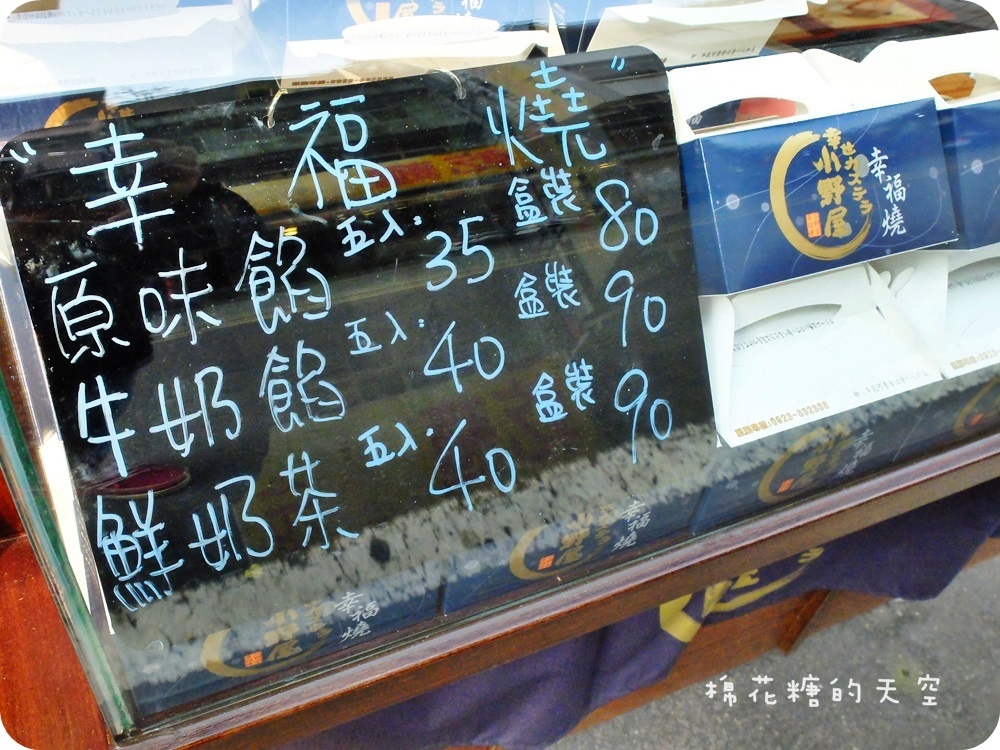 "幸福燒"
原味餡 五入: 35 盒裝 80
牛奶餡 五入: 40 盒裝 90
鮮奶茶 五入: 40 盒裝 90
幸せカステラ
小野屋
幸福燒
棉花糖的天空